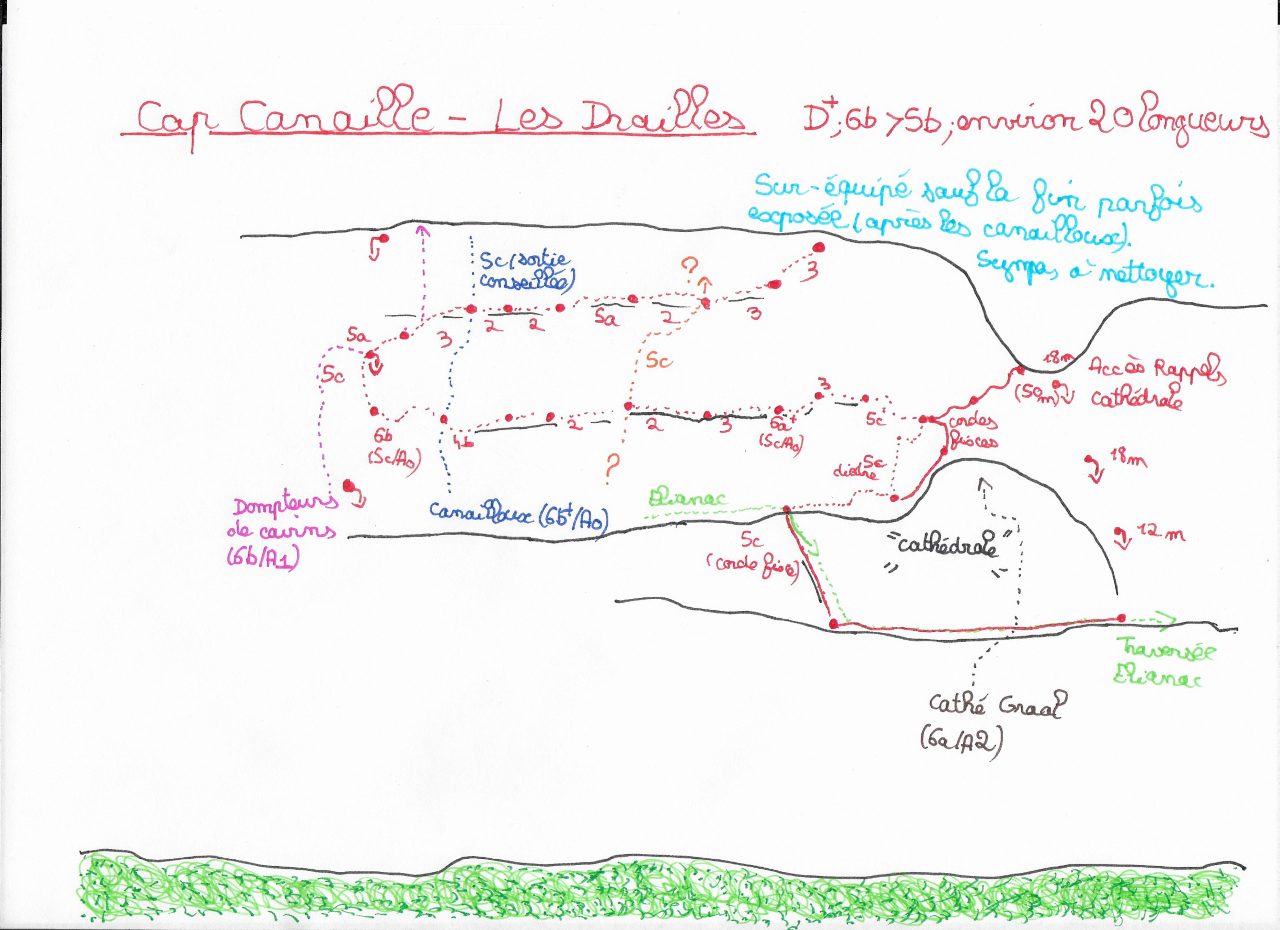 Cap Canaille - Les Drailles
D+, 6b > 5b, environ 20 longueurs
Sur-équipé sauf la fin parfois
exposée (après les canailloux).
Sympa, à nettoyer.
5c (sortie
conseillée)
?
3
5a
3
2
2
5a
2
3
5c
5c
18m
(50m)
Accès Rappels
cathédrale
6b
(5c/A0)
4b
2
2
3
6a+
(5c/A0)
3
5c
cordes
fixes
5c
dièdre
18m
?
Dompteurs
de cairns
(6b/A1)
Canailloux (6b+/A0)
Elianac
5c
(corde fixe)
"cathédrale"
12m
Traversée
Elianac
Cathé Graal
(6a/A2)